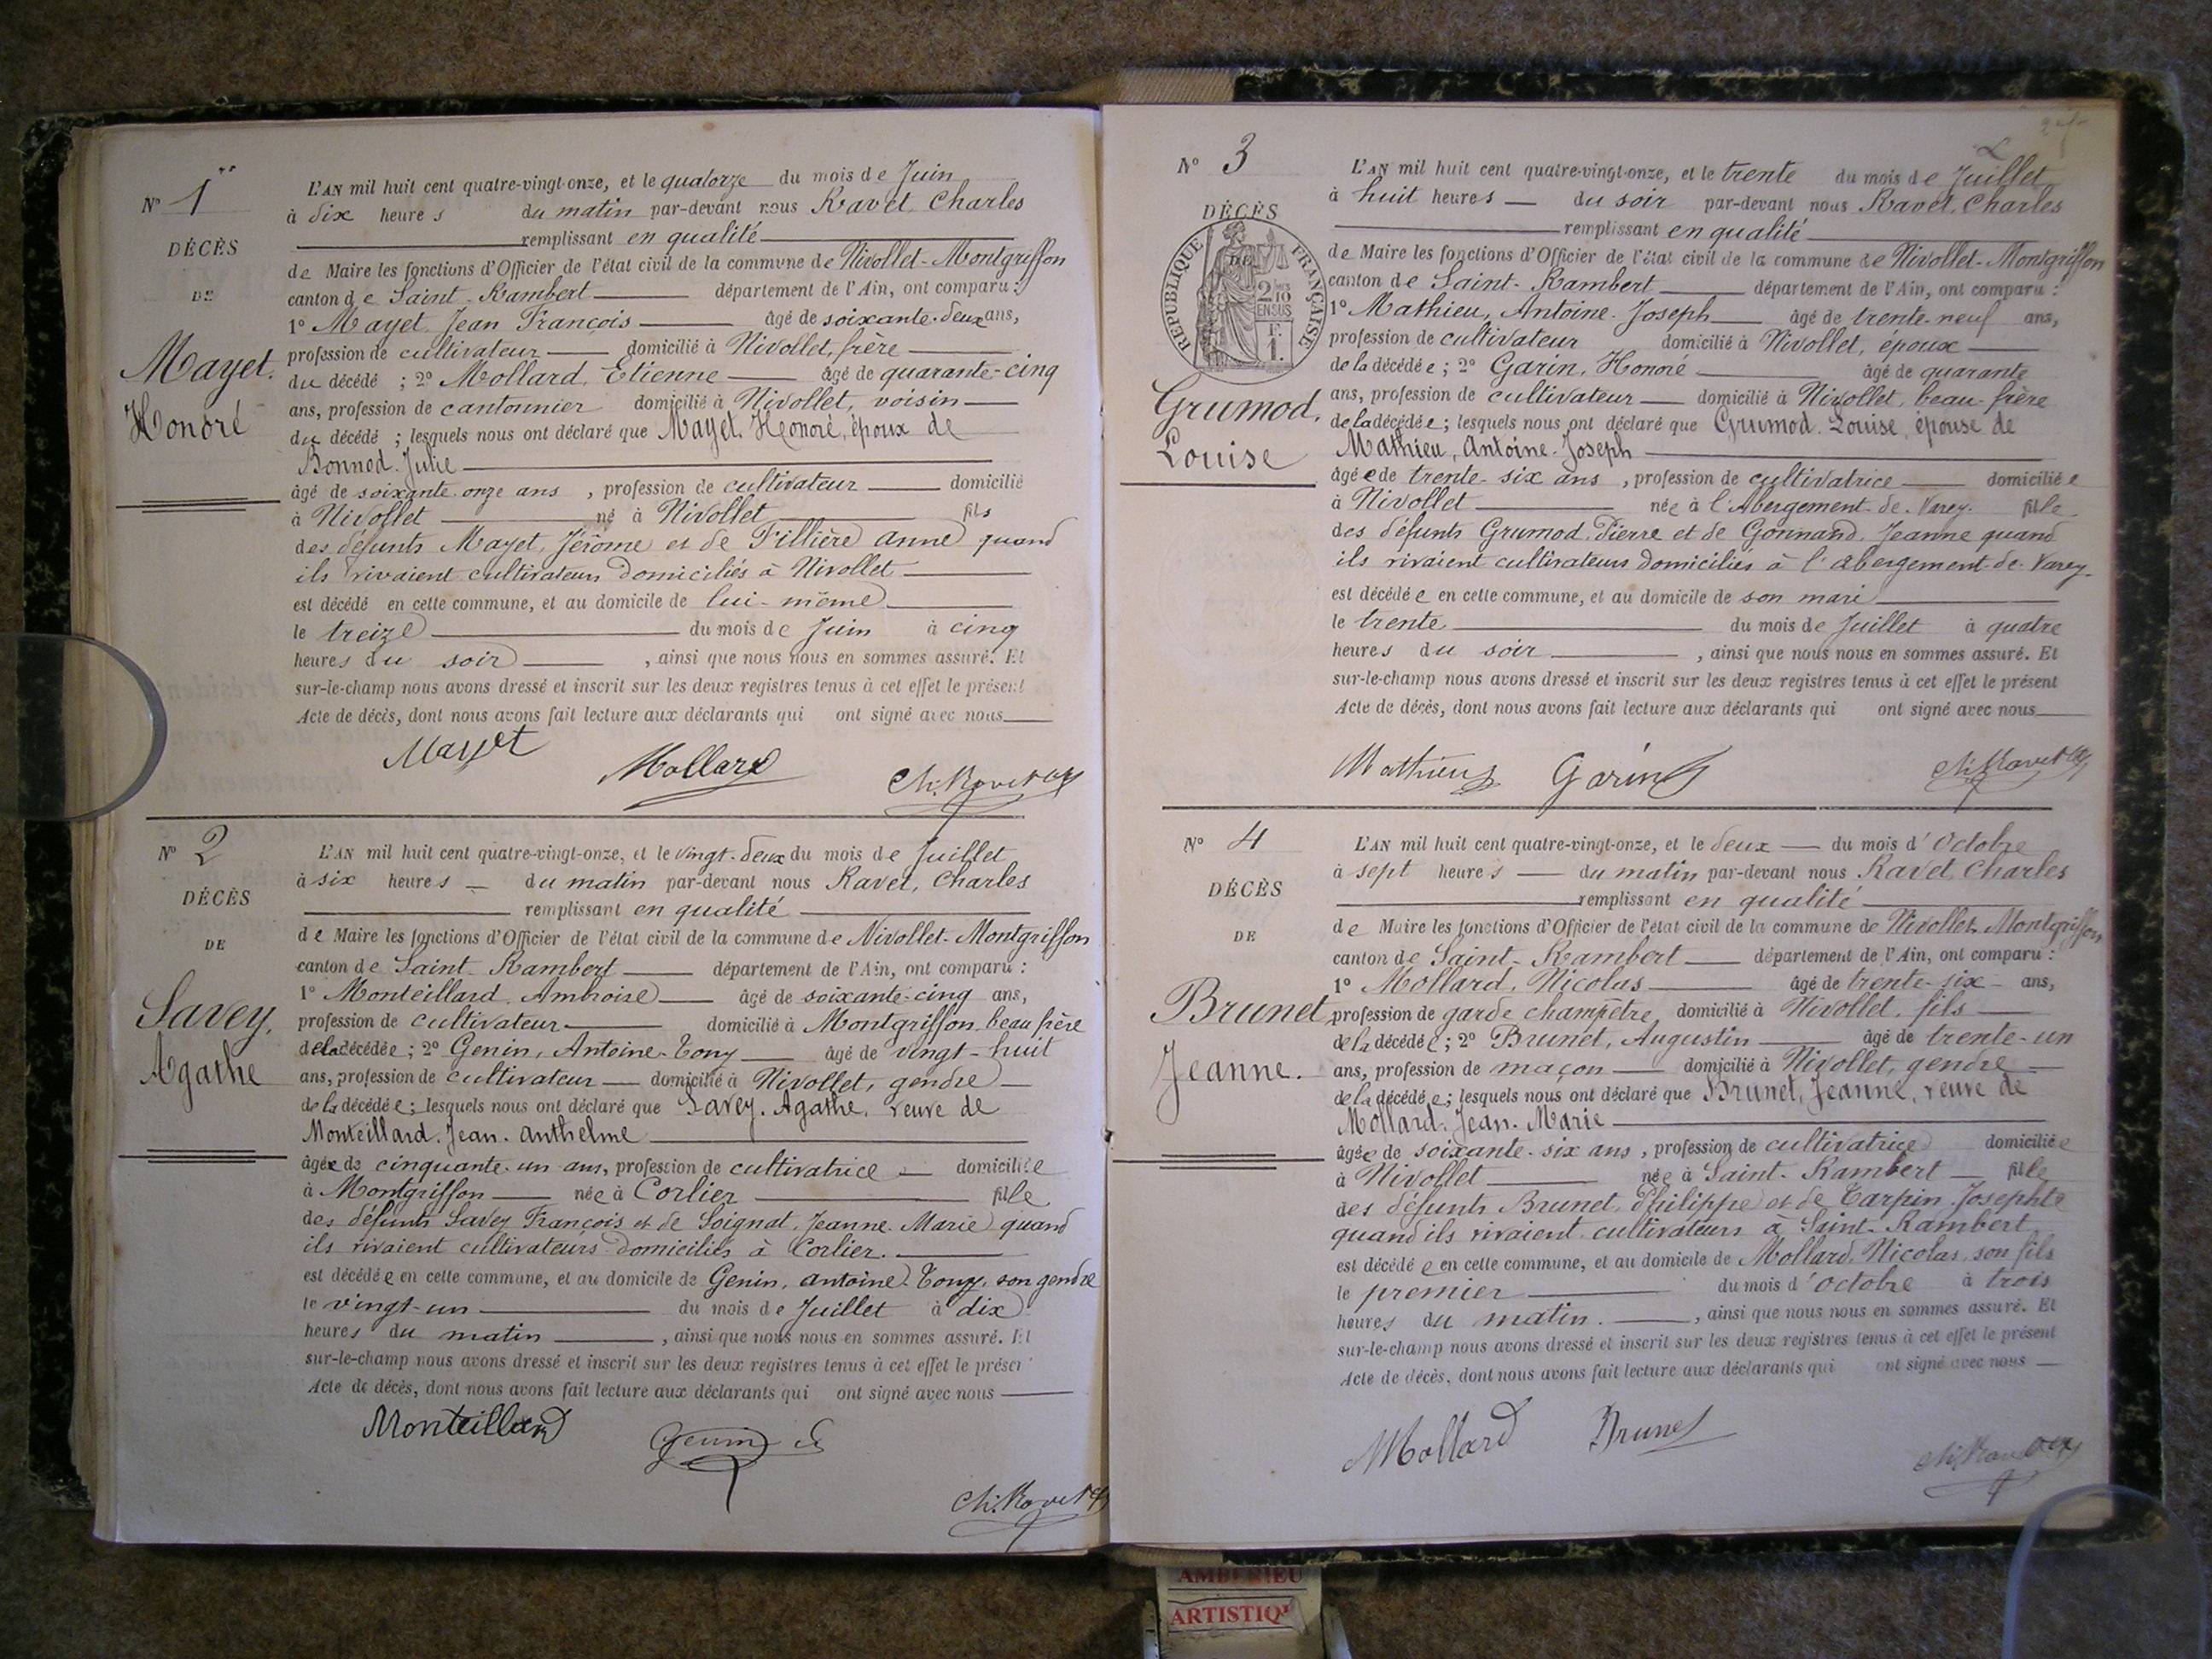 N° 1
DÉCÈS
DE
Mayet.
Honoré
L'AN mil huit cent quatre-vingt-onze, et le quatorze du mois de Juin
à six heures du matin par-devant nous Ravet, Charles
remplissant en qualité
de Maire les fonctions d'Officier de l'état civil de la commune de Nivollet-Montgriffon
canton de Saint-Rambert département de l'Ain, ont comparu :
1° Mayet, Jean François âgé de soixante-deux ans,
profession de cultivateur domicilié à Nivollet, frère
du décédé ; 2° Mollard, Etienne âgé de quarante-cinq
ans, profession de cantonnier domicilié à Nivollet, voisin
du décédé ; lesquels nous ont déclaré que Mayet, Honoré, époux de
Bonnod. Julie
âgé de soixante-onze ans, profession de cultivateur domicilié
à Nivollet né à Nivollet fils
des défunts Mayet, Jérôme et de Fillière anne quand
ils vivaient cultivateurs domiciliés à Nivollet
est décédé en cette commune, et au domicile de lui-même
le treize du mois de Juin à cinq
heures du soir, ainsi que nous nous en sommes assuré. Et
sur-le-champ nous avons dressé et inscrit sur les deux registres tenus à cet effet le présent
Acte de décès, dont nous avons fait lecture aux déclarants qui ont signé avec nous
Mayet Mollard Ch. Ravet
N° 2
DÉCÈS
DE
Savey,
Agathe
L'AN mil huit cent quatre-vingt-onze, et le vingt-deux du mois de Juillet
à six heures du matin par-devant nous Ravet, Charles
remplissant en qualité
de Maire les fonctions d'Officier de l'état civil de la commune de Nivollet-Montgriffon
canton de Saint-Rambert département de l'Ain, ont comparu :
1° Monteillard, Ambroise âgé de soixante-cinq ans,
profession de cultivateur domicilié à Montgriffon beau frère
de la décédée ; 2° Genin, Antoine-Tony âgé de vingt-huit
ans, profession de cultivateur domicilié à Nivollet, gendre
de la décédée ; lesquels nous ont déclaré que Savey. Agathe, veuve de
Monteillard. Jean. anthelme
âgée de cinquante-un ans, profession de cultivatrice domiciliée
à Montgriffon née à Corlier fille
des défunts Savey François et de Soignat, Jeanne-Marie quand
ils vivaient cultivateurs domiciliés à Corlier.
est décédée en cette commune, et au domicile de Genin, antoine-Tony, son gendre
le vingt-un du mois de Juillet à dix
heures du matin, ainsi que nous nous en sommes assuré. Et
sur-le-champ nous avons dressé et inscrit sur les deux registres tenus à cet effet le présent
Acte de décès, dont nous avons fait lecture aux déclarants qui ont signé avec nous
Monteillard Genin
Ch. Ravet
N° 3
DÉCÈS
DE
RÉPUBLIQUE FRANÇAISE
2 10 EN SUS
F. 1.
Grumod,
Louise
L'AN mil huit cent quatre-vingt-onze, et le trente du mois de Juillet
à huit heures du soir par-devant nous Ravet, Charles
remplissant en qualité
de Maire les fonctions d'Officier de l'état civil de la commune de Nivollet-Montgriffon
canton de Saint-Rambert département de l'Ain, ont comparu :
1° Mathieu, Antoine-Joseph âgé de trente-neuf ans,
profession de cultivateur domicilié à Nivollet, époux
de la décédée ; 2° Garin, Honoré âgé de quarante
ans, profession de cultivateur domicilié à Nivollet, beau-frère
de la décédée ; lesquels nous ont déclaré que Grumod. Louise, épouse de
Mathieu, Antoine-Joseph
âgée de trente-six ans, profession de cultivatrice domiciliée
à Nivollet née à l'Abergement-de-Varey. fille
des défunts Grumod, Pierre et de Gonnand, Jeanne quand
ils vivaient cultivateurs domiciliés à l'abergement-de-Varey.
est décédée en cette commune, et au domicile de son mari
le trente du mois de Juillet à quatre
heures du soir, ainsi que nous nous en sommes assuré. Et
sur-le-champ nous avons dressé et inscrit sur les deux registres tenus à cet effet le présent
Acte de décès, dont nous avons fait lecture aux déclarants qui ont signé avec nous
Mathieu Garin Ch. Ravet
N° 4
DÉCÈS
DE
Brunet,
Jeanne.
L'AN mil huit cent quatre-vingt-onze, et le deux du mois d'Octobre
à sept heures du matin par-devant nous Ravet Charles
remplissant en qualité
de Maire les fonctions d'Officier de l'état civil de la commune de Nivollet-Montgriffon
canton de Saint-Rambert département de l'Ain, ont comparu :
1° Mollard, Nicolas âgé de trente-six ans,
profession de garde champêtre domicilié à Nivollet, fils
de la décédée ; 2° Brunet, Augustin âgé de trente-un
ans, profession de maçon domicilié à Nivollet, gendre
de la décédée ; lesquels nous ont déclaré que Brunet, Jeanne, veuve de
Mollard. Jean-Marie
âgée de soixante-six ans, profession de cultivatrice domiciliée
à Nivollet née à Saint-Rambert fille
des défunts Brunet, Philippe et de Tarpin Josephte
quand ils vivaient cultivateurs à Saint-Rambert
est décédée en cette commune, et au domicile de Mollard, Nicolas, son fils
le premier du mois d'octobre à trois
heures du matin., ainsi que nous nous en sommes assuré. Et
sur-le-champ nous avons dressé et inscrit sur les deux registres tenus à cet effet le présent
Acte de décès, dont nous avons fait lecture aux déclarants qui ont signé avec nous
Mollard Brunet Ch. Ravet
AMBERIEU
ARTISTIQU